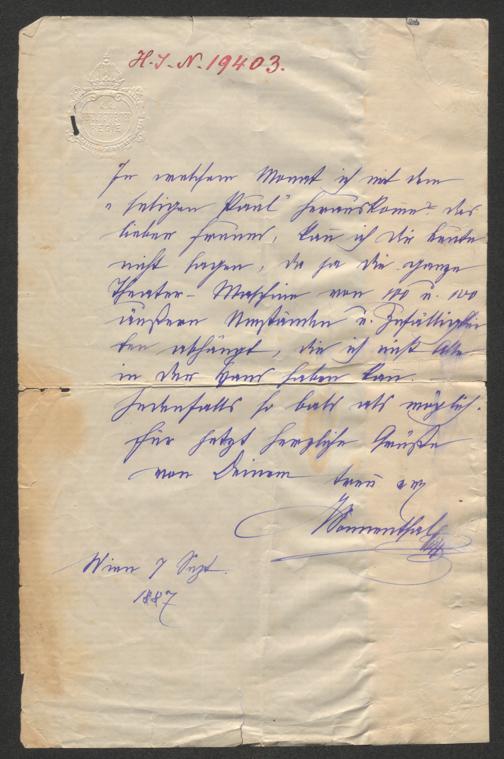 H. I. N. 19403.
In welchem Monat ich mit dem
"seligen Paul" herauskomme das
lieber Freund, kann ich Dir heute
nicht sagen, da ja die ganze
Theater-Maschine von 100 u. 100
äußern Umständen u. Zufälligkei
ten abhängt, die ich nicht alle
in der Hand haben kann.
Jedenfalls so bald als möglich.
Für jetzt herzliche Grüße
von Deinem treu erg
Sonnenthal
Wien 7 Sept.
1887